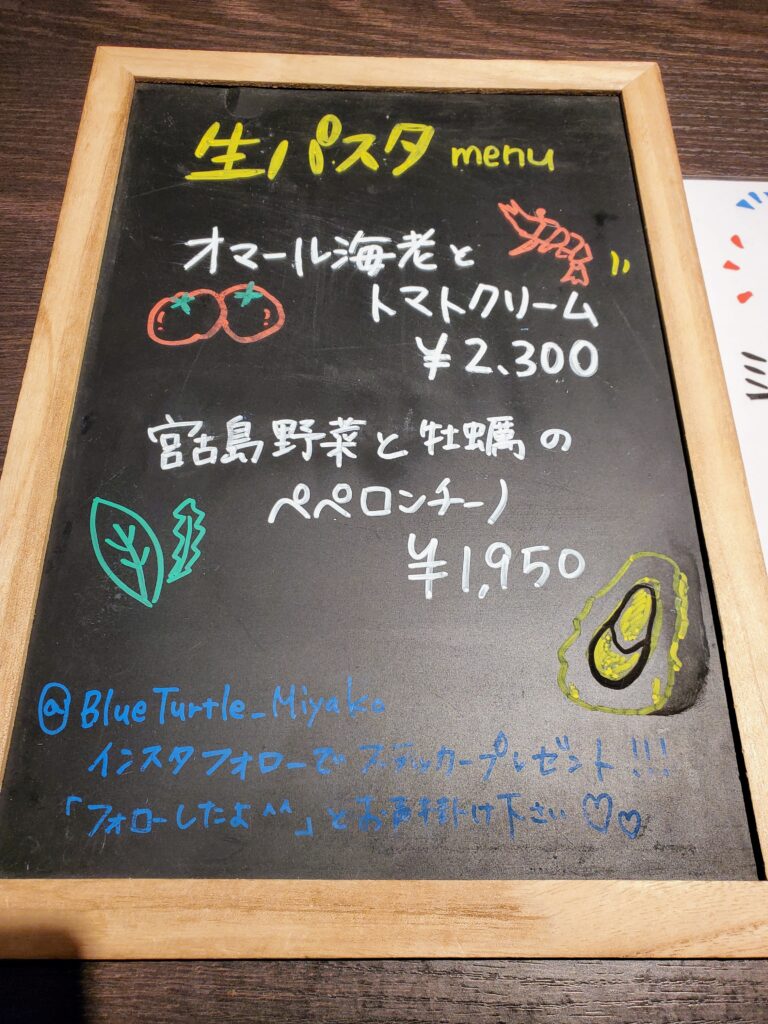 生パスタ menu
オマール海老と
トマトクリーム
¥2.300
宮古島野菜と牡蠣の
ペペロンチーノ
¥1,950
@BlueTurtle_Miyako
インスタフォローでステッカープレゼント!!!
「フォローしたよ^^」とお声掛け下さい♡♡